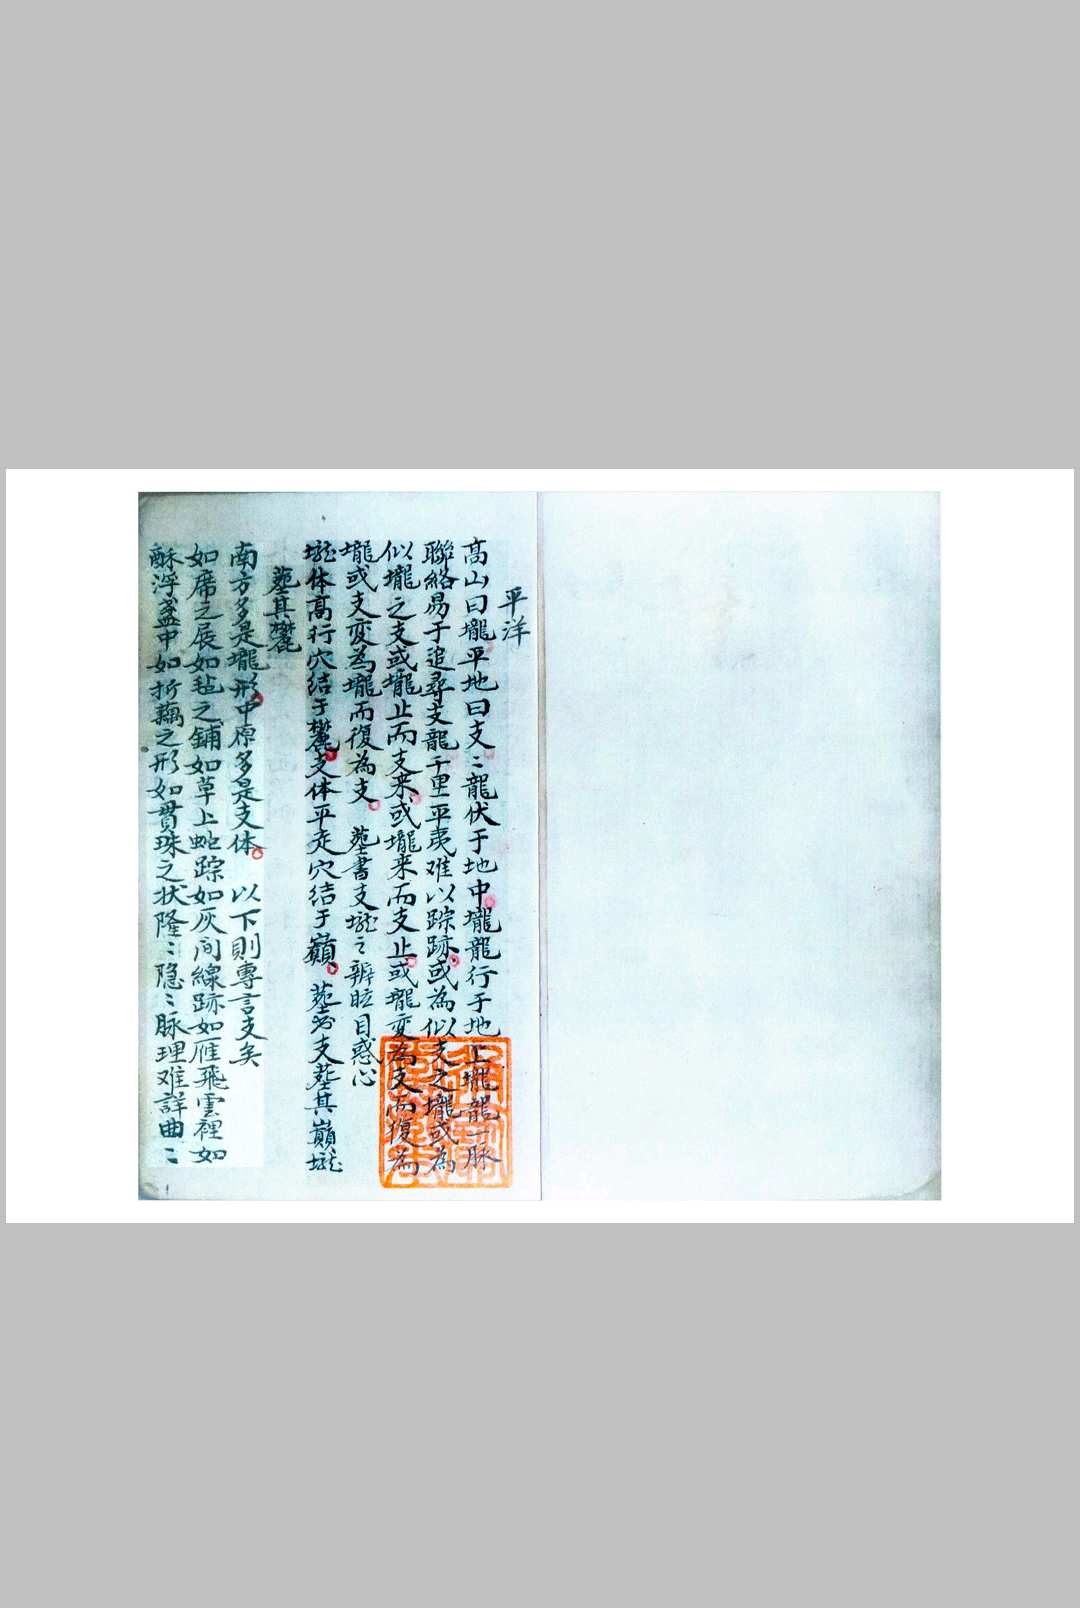 平洋
高山曰壠平地曰支〻龍伏于地中壠龍行于地上壠龍一脉
聯絡易于追尋支龍千里平夷难以踪跡或為似支之壠或為
似壠之支或壠止而支来或壠来而支止或壠変為支而復為
壠或支変為壠而復為支 塟書支壠之辨眩目惑心
壠体髙行穴結于麓支体平走穴結于巔 塟支塟其巔壠
塟其麓
南方多是壠形中原多是支体 以下則專言支矣
如席之展如毡之鋪如草上蛇踪如灰间線跡如雁飛雲裡如
酥浮盞中如折藕之形如貫珠之状隆〻隐〻脉理难詳曲〻